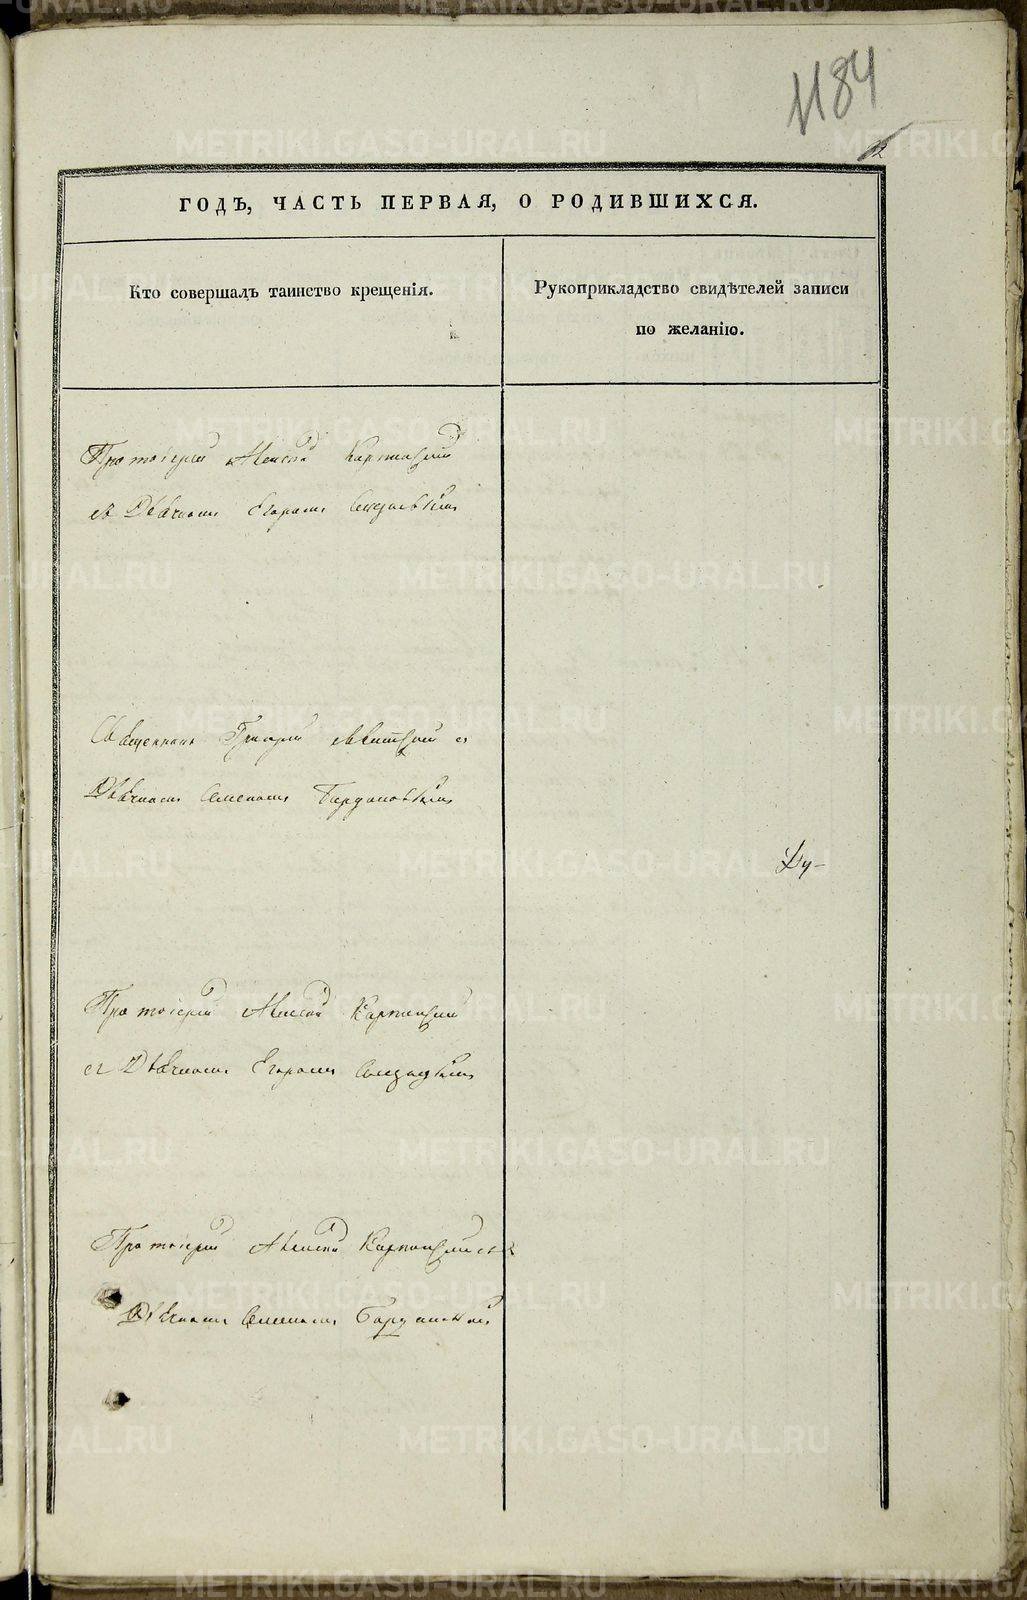 1184
ГОДЪ, ЧАСТЬ ПЕРВАЯ, О РОДИВШИХСЯ.
Кто совершалъ таинство крещенія.
Рукоприкладство свидѣтелей записи
по желанію.
Протоіерей Алексѣй Карпинскій
съ Дьячкомъ Егоромъ
Священникъ Григорій съ
Дьячкомъ Семеномъ
Ду-
Протоіерей Алексѣй Карпинскій
съ Дьячкомъ Егоромъ
Протоіерей Алексѣй Карпинскій съ
Дьячкомъ Семеномъ
METRIKI.GASO-URAL.RU